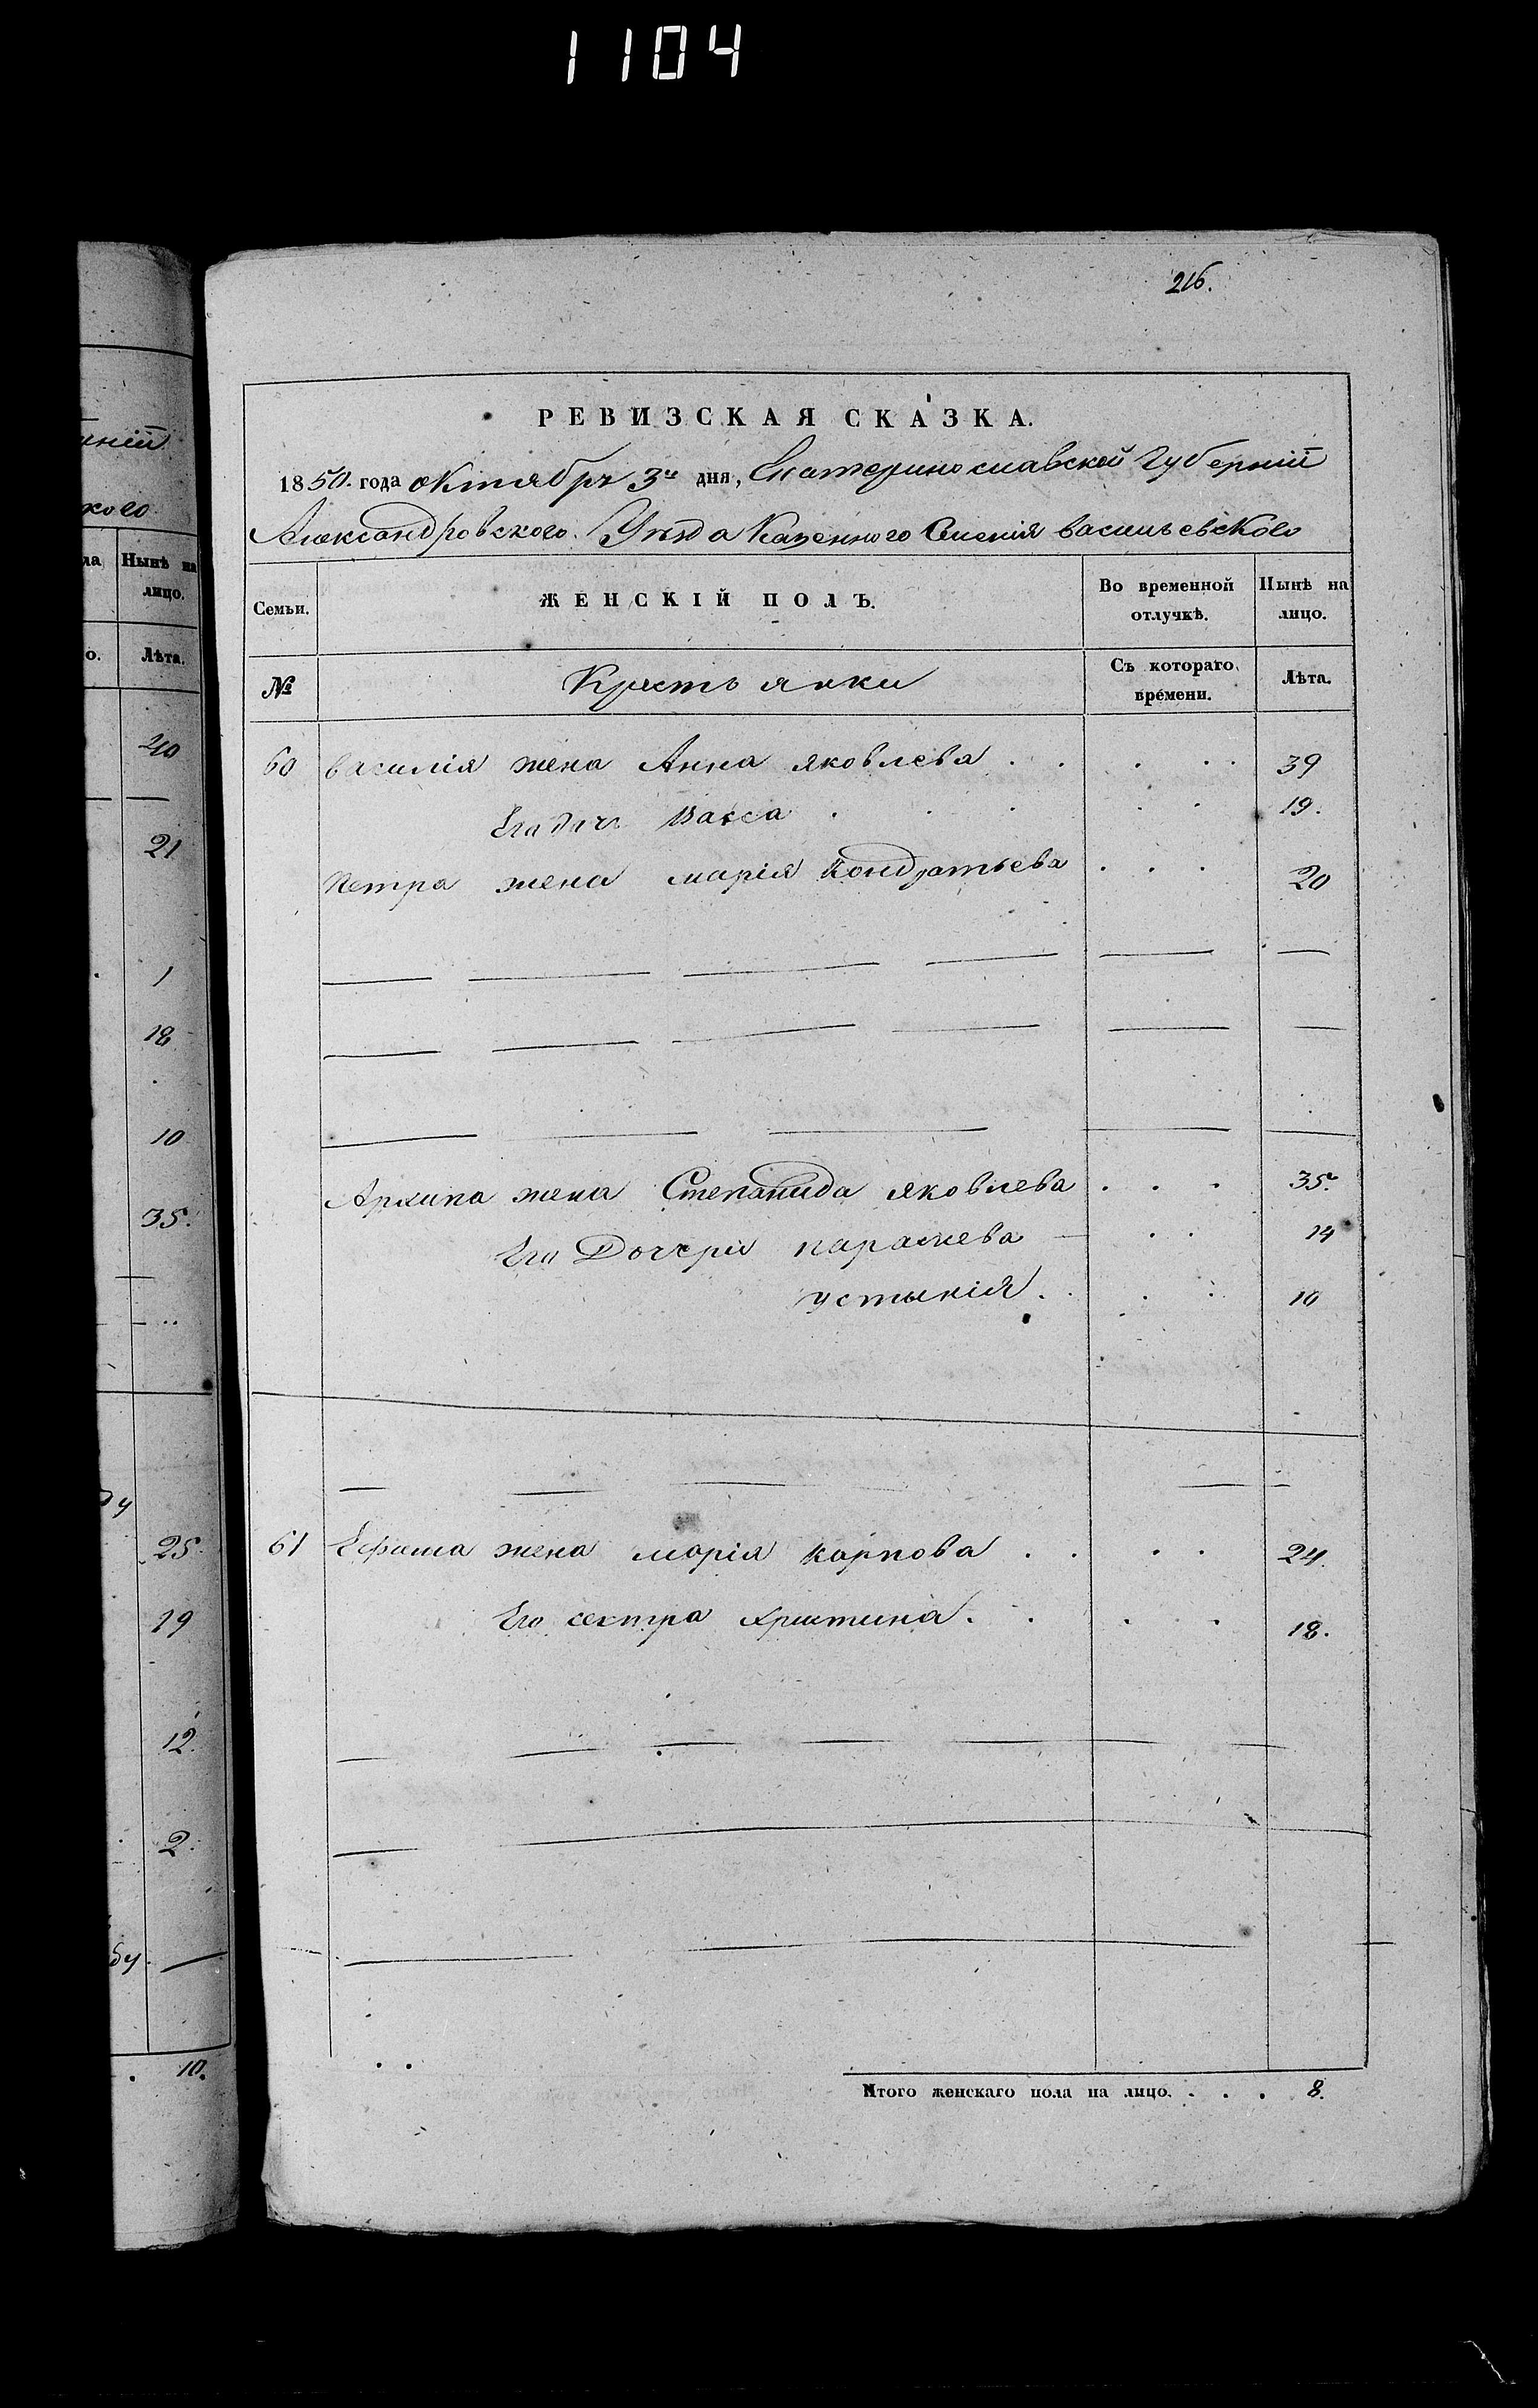 1104
216.
РЕВИЗСКАЯ СКАЗКА.
1850. года октября 3го дня, Екатеринославской Губернiи
Александровского Уѣзда Казенного Селенiя васильевского
Семьи.
ЖЕНСКIЙ ПОЛЪ.
Во временной отлучкѣ.
Нынѣ на лицо.
№
Крестьянки
Съ котораго времени.
Лѣта.
60 василiя жена Анна яковлева . . . . . 39
Его дочь Васса . . . . . 19.
Петра жена марiя Кондратьева . . . 20
Архипа жена Степанида яковлева . . . 35.
Его Дочери параскева . . 14
устинiя . . . . 10
61 Ефима жена марiя карпова . . . . 24.
Его сестра христина . . . . 18.
Итого женскаго пола на лицо. . . . 8.
нiй
кого
ла
Нынѣ на лицо.
о.
Лѣта.
40
21
1
18
10
35.
ду
25.
19
12.
2.
бу.
. 10.